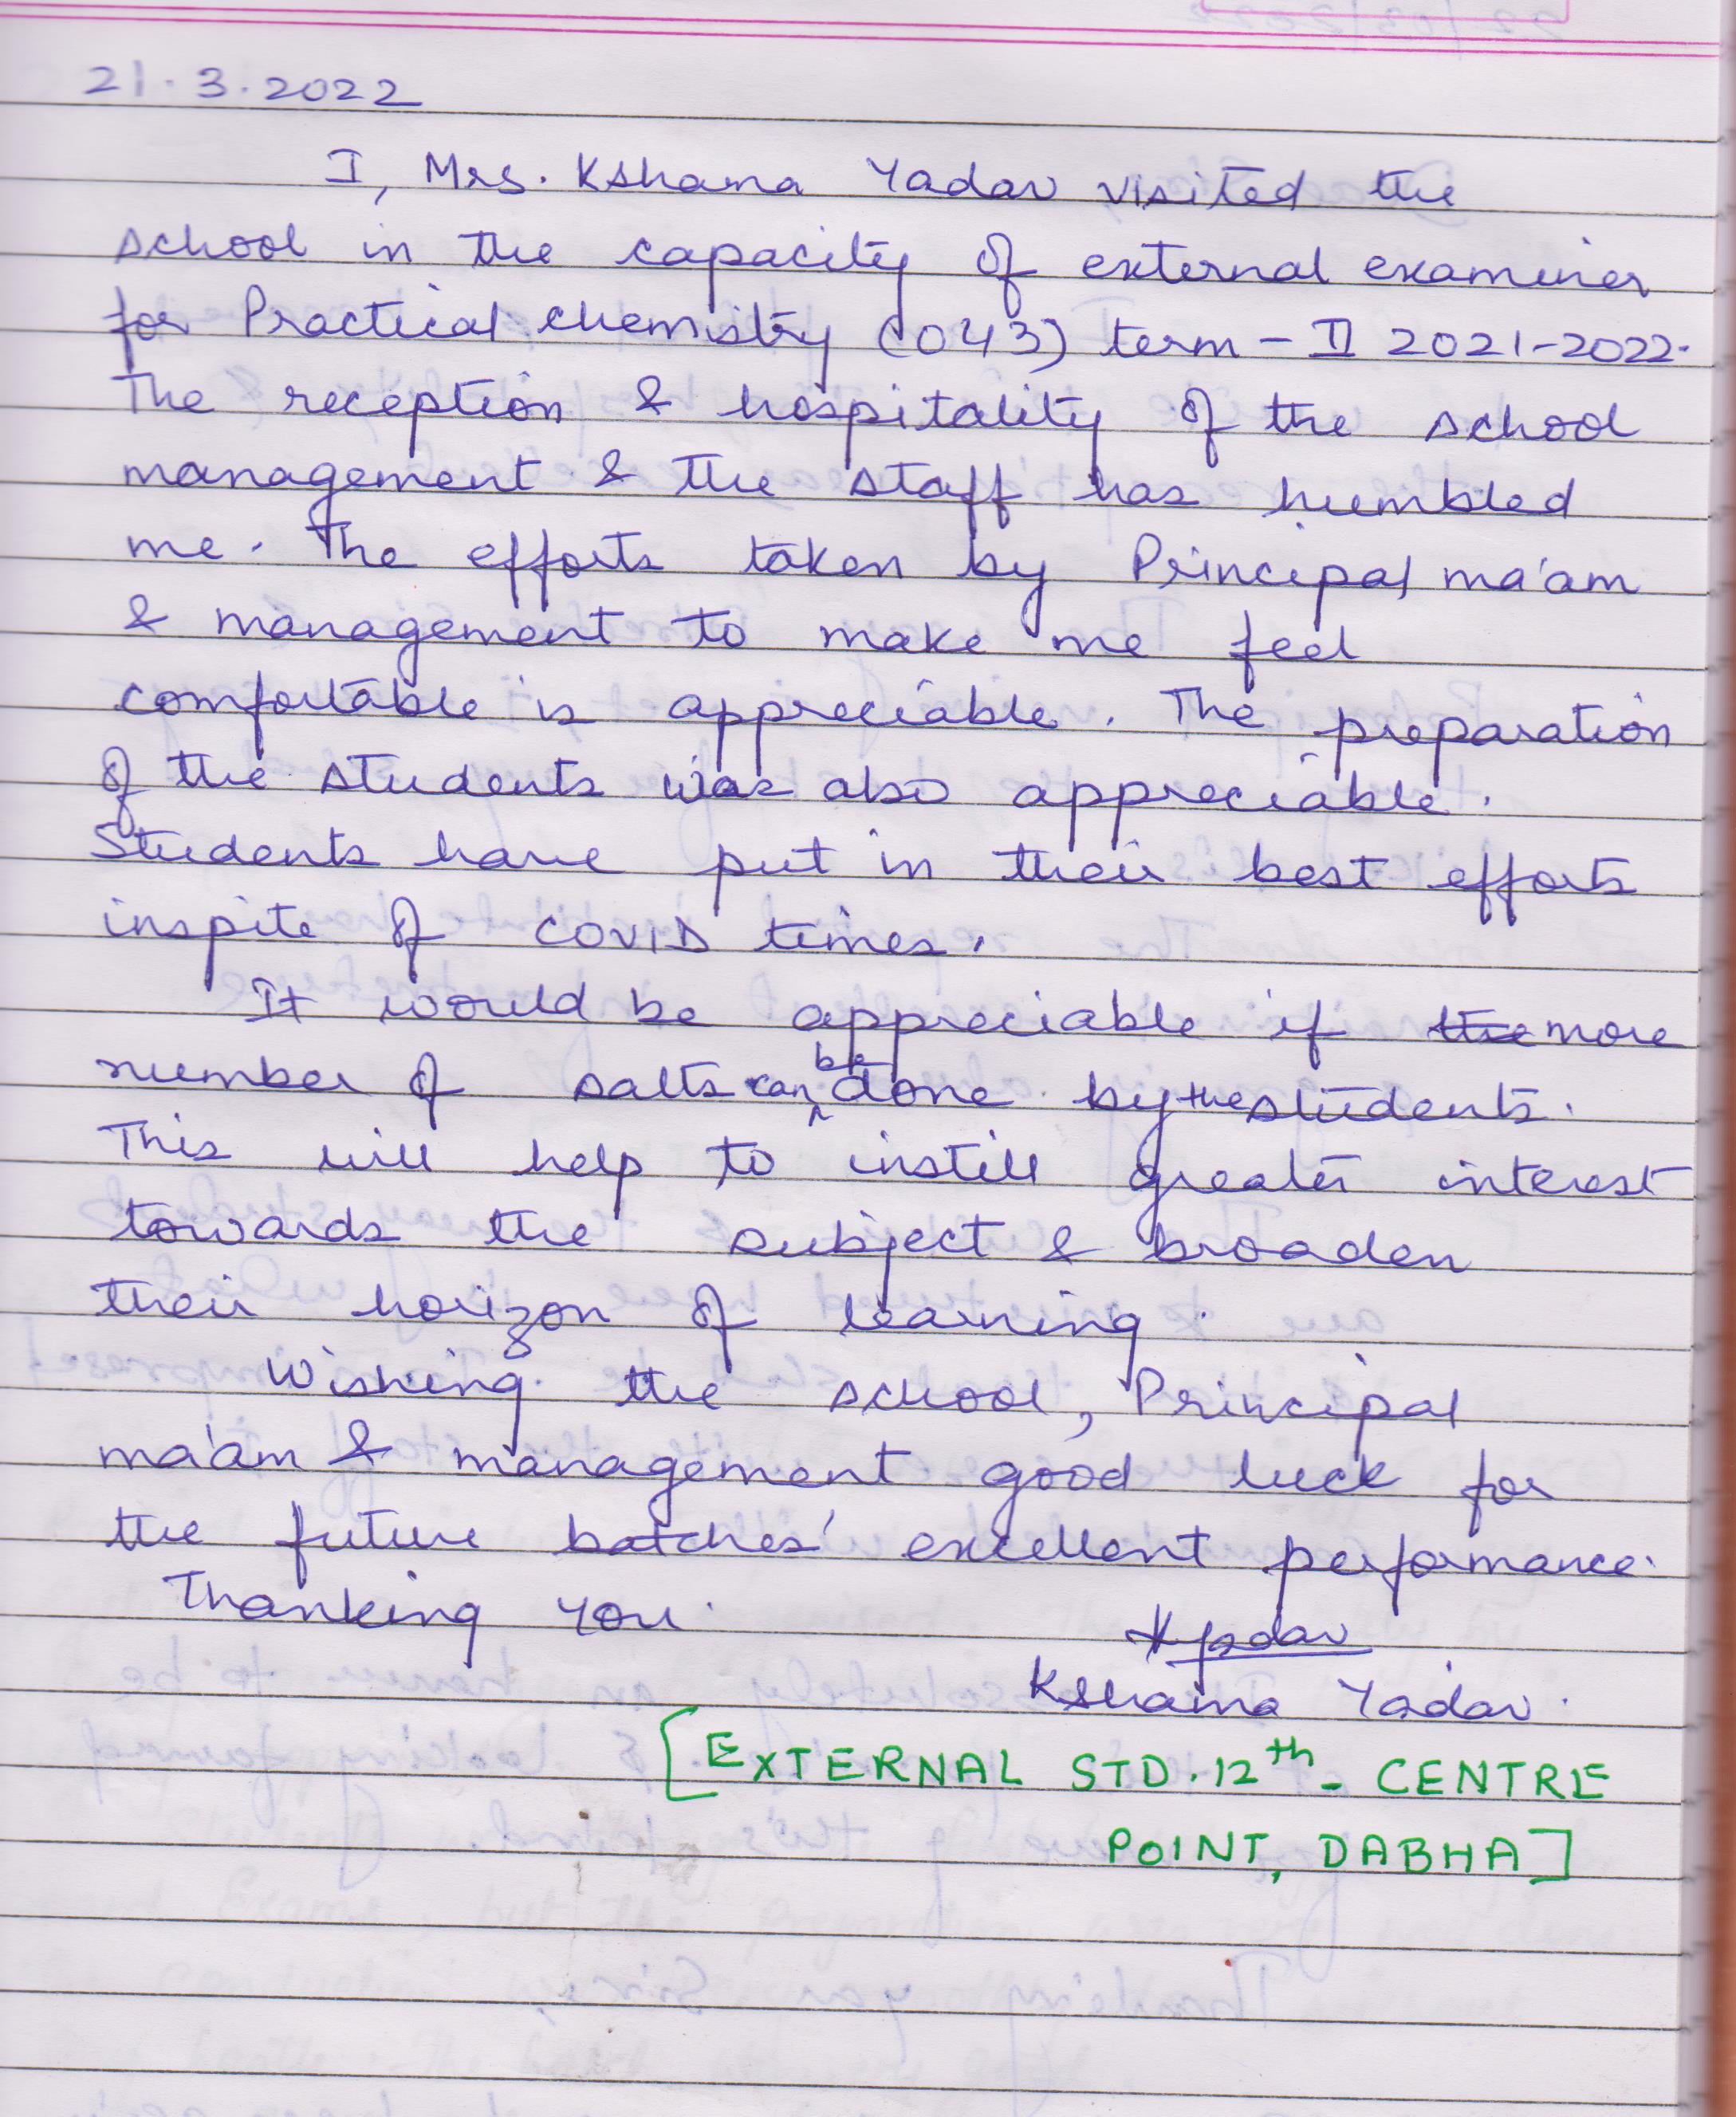 21.3.2022
I, Mrs. Kshama Yadav visited the
school in the capacity of external examiner
for Practical chemistry (043) term - II 2021-2022.
The reception & hospitality of the school
management & the staff has humbled
me. The efforts taken by Principal ma'am
& management to make me feel
comfortable is appreciable. The preparation
of the students was also appreciable.
Students have put in their best efforts
inspite of COVID times.
It would be appreciable if the more
number of salts can be done by the students.
This will help to instill greater interest
towards the subject & broaden
their horizon of learning.
Wishing the school, Principal
ma'am & management good luck for
the future batches' excellent performance.
Thanking you.
Kyadav
Kshama Yadav.
[EXTERNAL STD. 12th - CENTRE
POINT, DABHA]